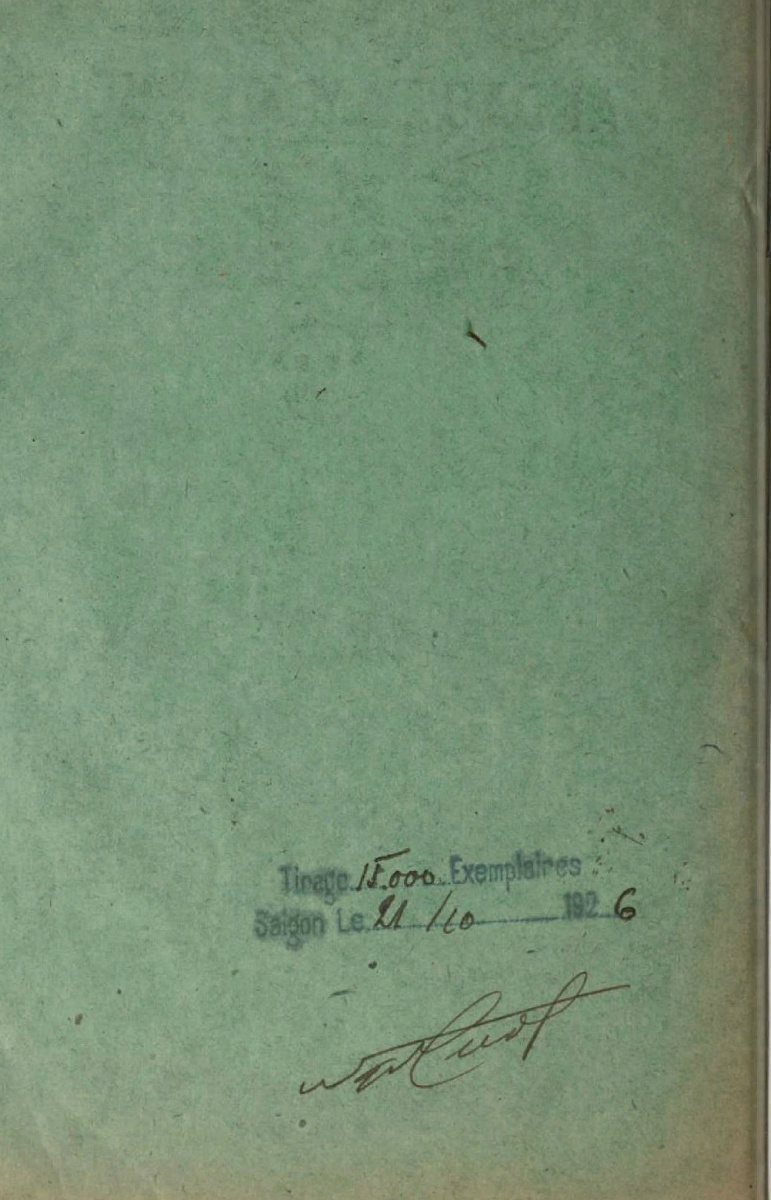 Tirage 15.000 Exemplaires
Saigon Le 21/10 1926